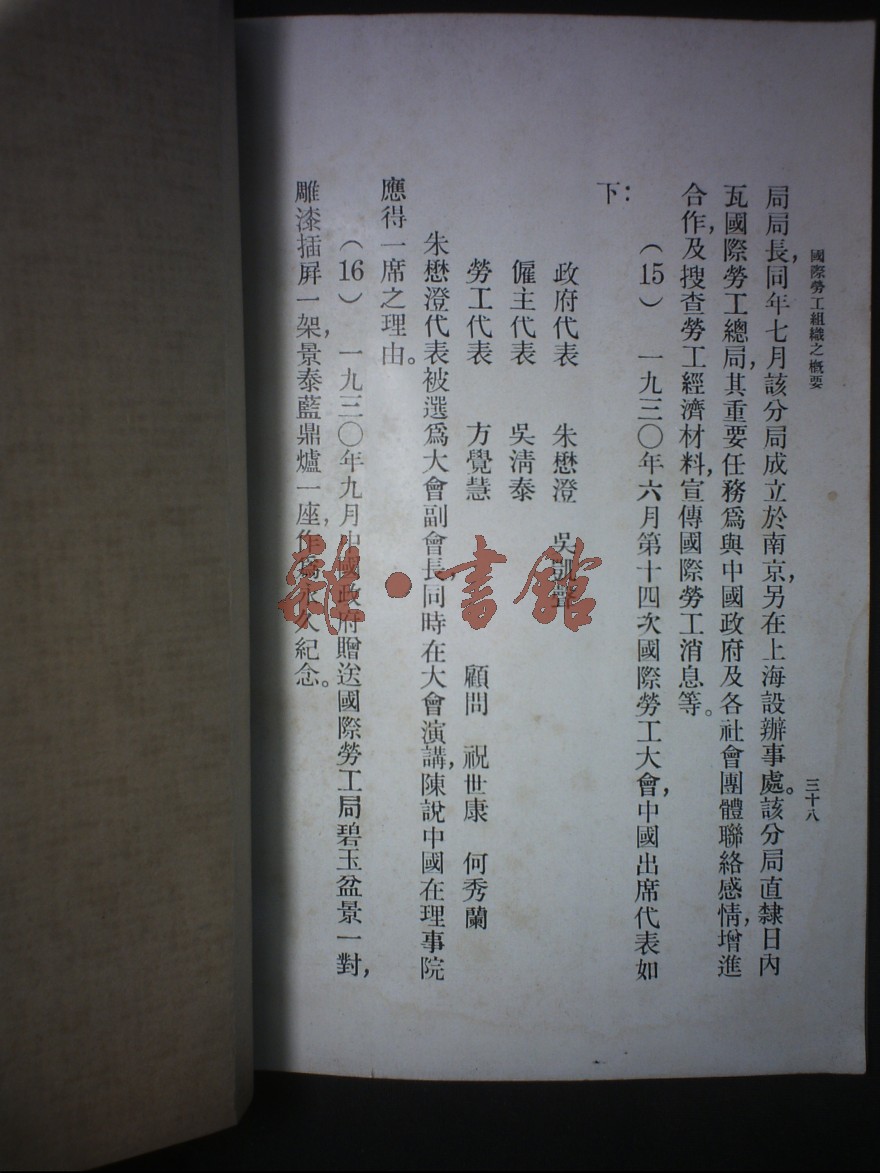 國際勞工組織之槪要
三十八
局局長，同年七月該分局成立於南京，另在上海設辦事處。該分局直隸日內
瓦國際勞工總局，其重要任務爲與中國政府及各社會團體聯絡感情，增進
合作，及搜查勞工經濟材料，宣傳國際勞工消息等。
（15） 一九三〇年六月第十四次國際勞工大會，中國出席代表如
下：
政府代表 朱懋澄 吳凱聲
僱主代表 吳淸泰
勞工代表 方覺慧 顧問 祝世康 何秀蘭
朱懋澄代表被選爲大會副會長，同時在大會演講，陳說中國在理事院
應得一席之理由。
（16） 一九三〇年九月中國政府贈送國際勞工局碧玉盆景一對，
雕漆插屏一架，景泰藍鼎爐一座，作爲永久紀念。
雜·書館